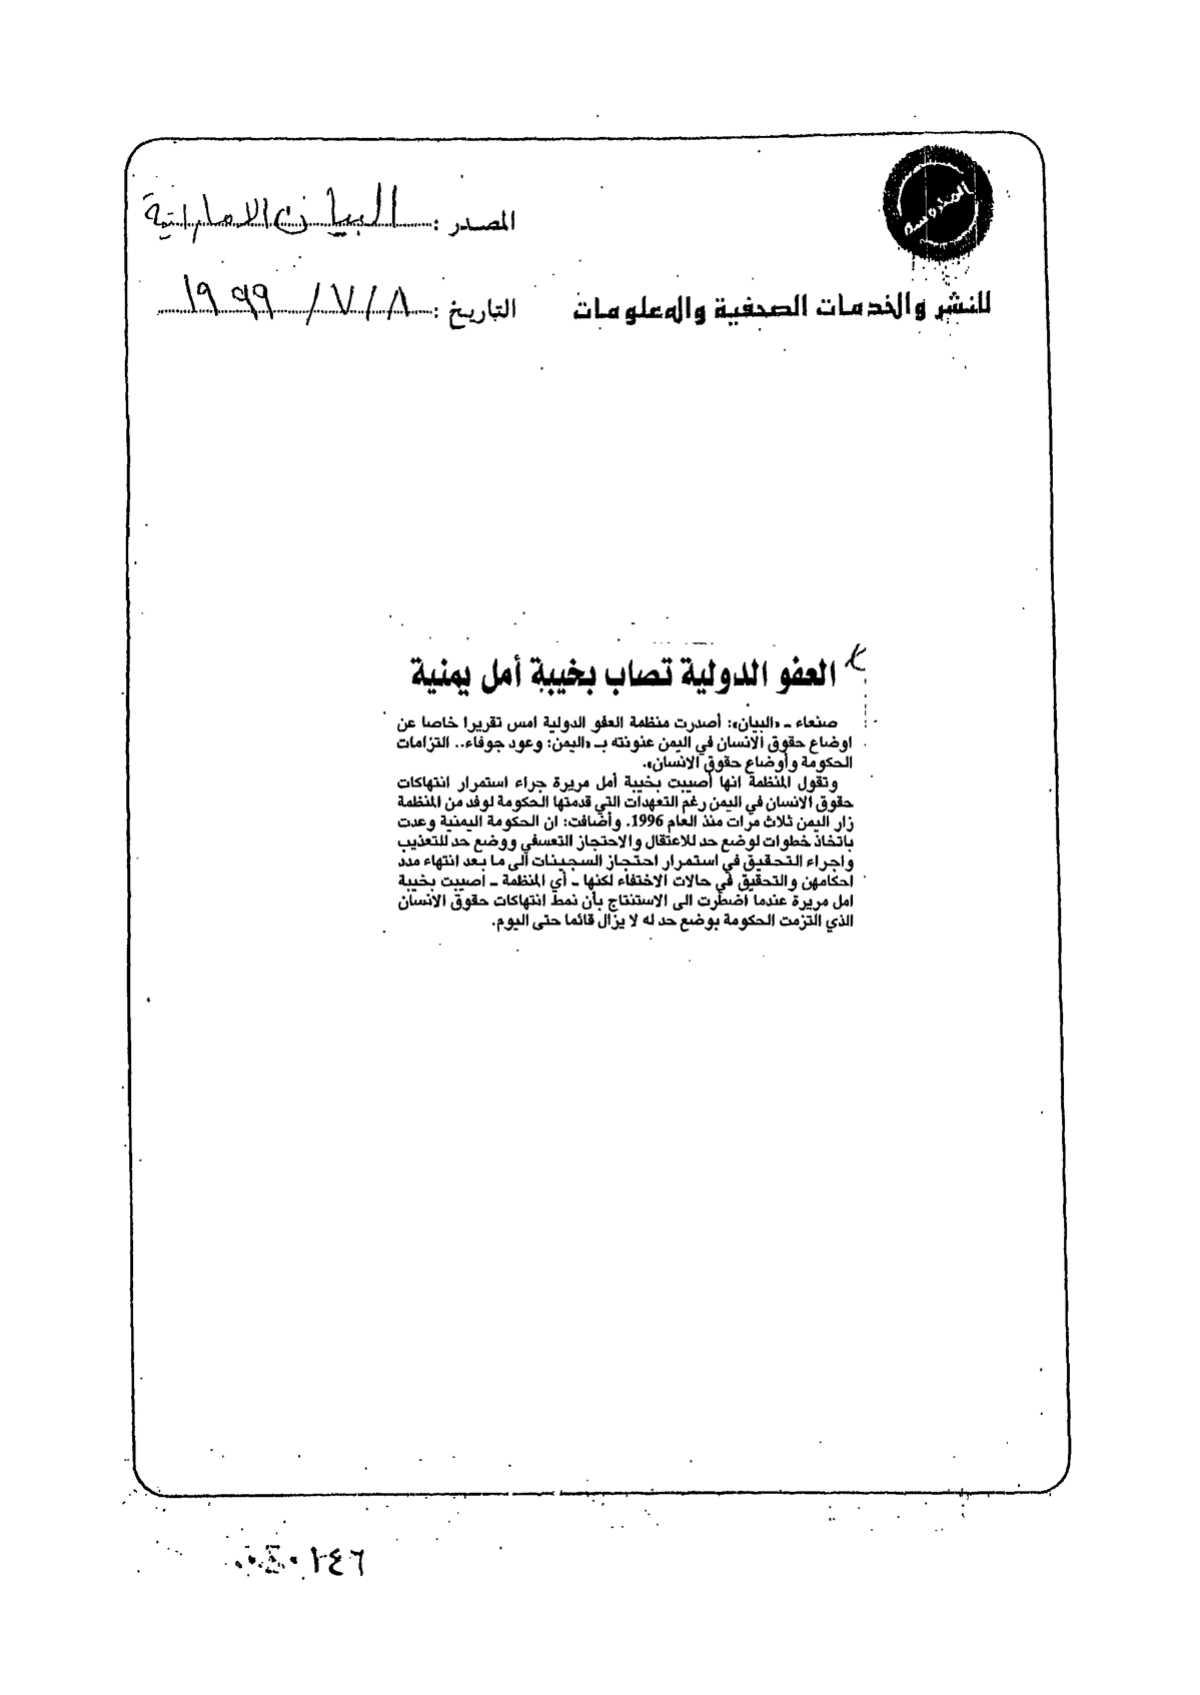 المدروسة
المصدر : البيان الاماراتية
للنشر والخدمات الصحفية والمعلومات
التاريخ : ٨ / ٧ / ١٩٩٩
العفو الدولية تصاب بخيبة أمل يمنية
صنعاء ـ «البيان»: أصدرت منظمة العفو الدولية امس تقريرا خاصا عن
اوضاع حقوق الانسان في اليمن عنونته بـ «اليمن: وعود جوفاء.. التزامات
الحكومة وأوضاع حقوق الانسان».
وتقول المنظمة انها أصيبت بخيبة أمل مريرة جراء استمرار انتهاكات
حقوق الانسان في اليمن رغم التعهدات التي قدمتها الحكومة لوفد من المنظمة
زار اليمن ثلاث مرات منذ العام 1996. وأضافت: ان الحكومة اليمنية وعدت
باتخاذ خطوات لوضع حد للاعتقال والاحتجاز التعسفي ووضع حد للتعذيب
واجراء التحقيق في استمرار احتجاز السجينات الى ما بعد انتهاء مدد
احكامهن والتحقيق في حالات الاختفاء لكنها ـ أي المنظمة ـ اصيبت بخيبة
امل مريرة عندما اضطرت الى الاستنتاج بأن نمط انتهاكات حقوق الانسان
الذي التزمت الحكومة بوضع حد له لا يزال قائما حتى اليوم.